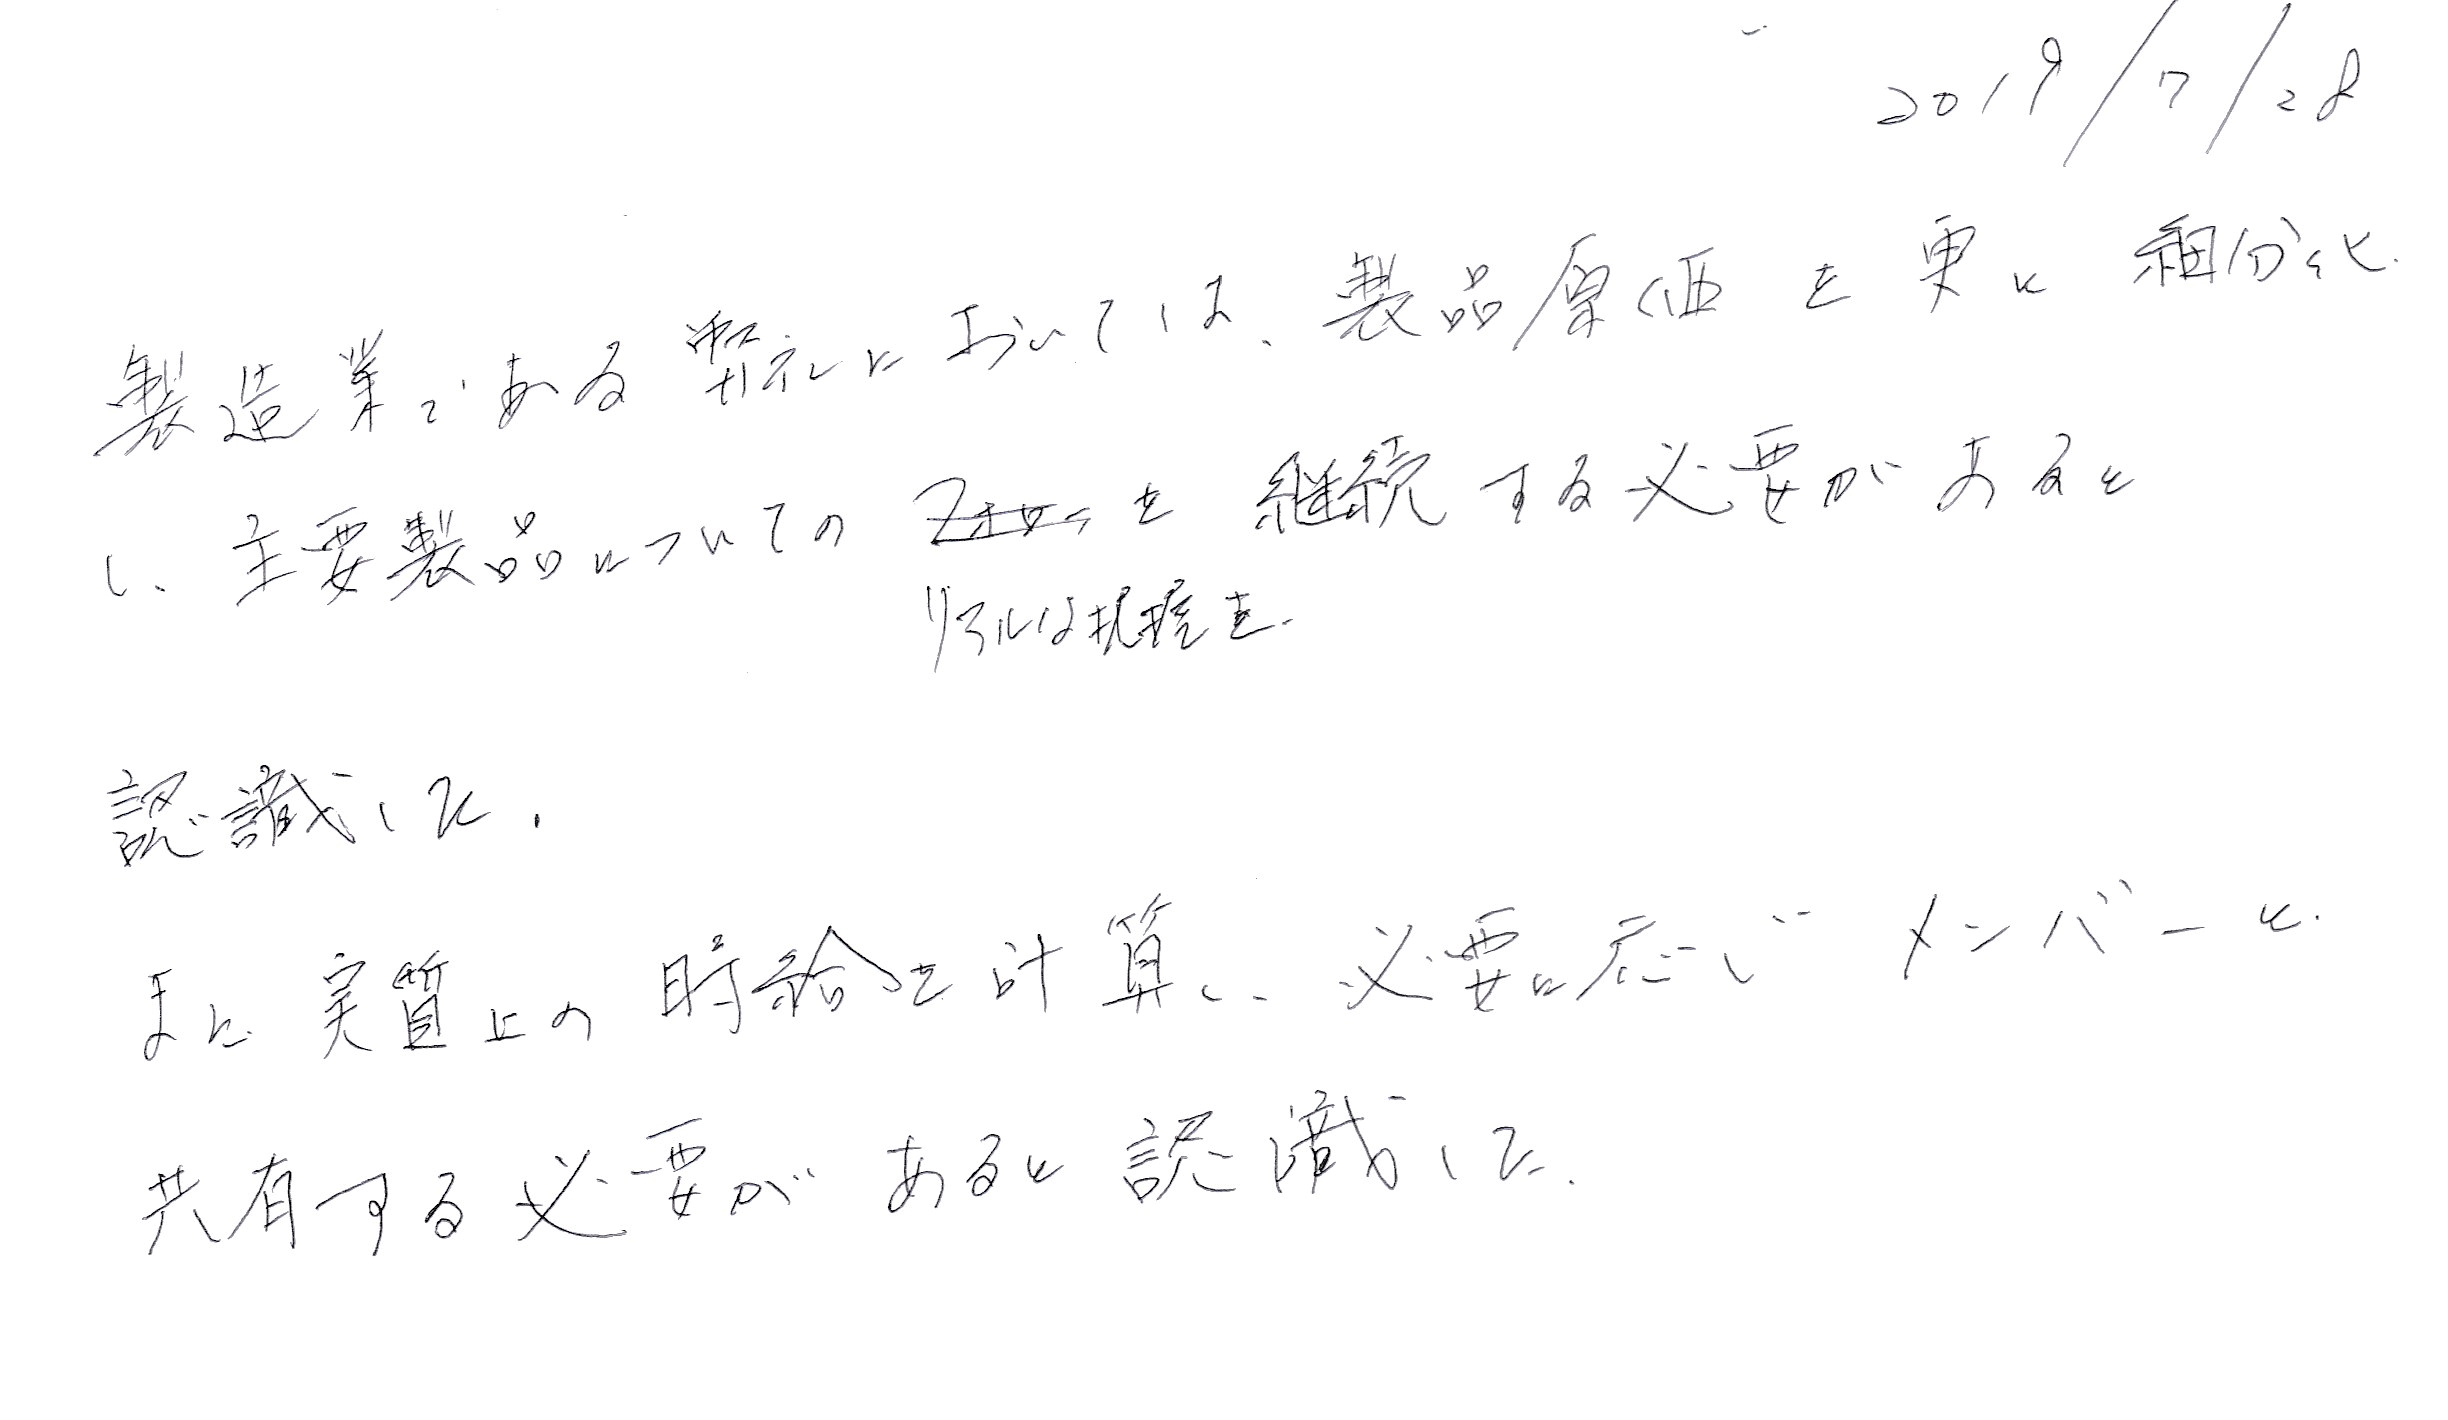 2019/7/28
製造業である弊社においては、製品原価を更に細分化
し、主要製品についての を継続する必要があると
リアルな把握を
認識した。
また実質上の時給を計算し、必要に応じメンバーと
共有する必要があると認識した。